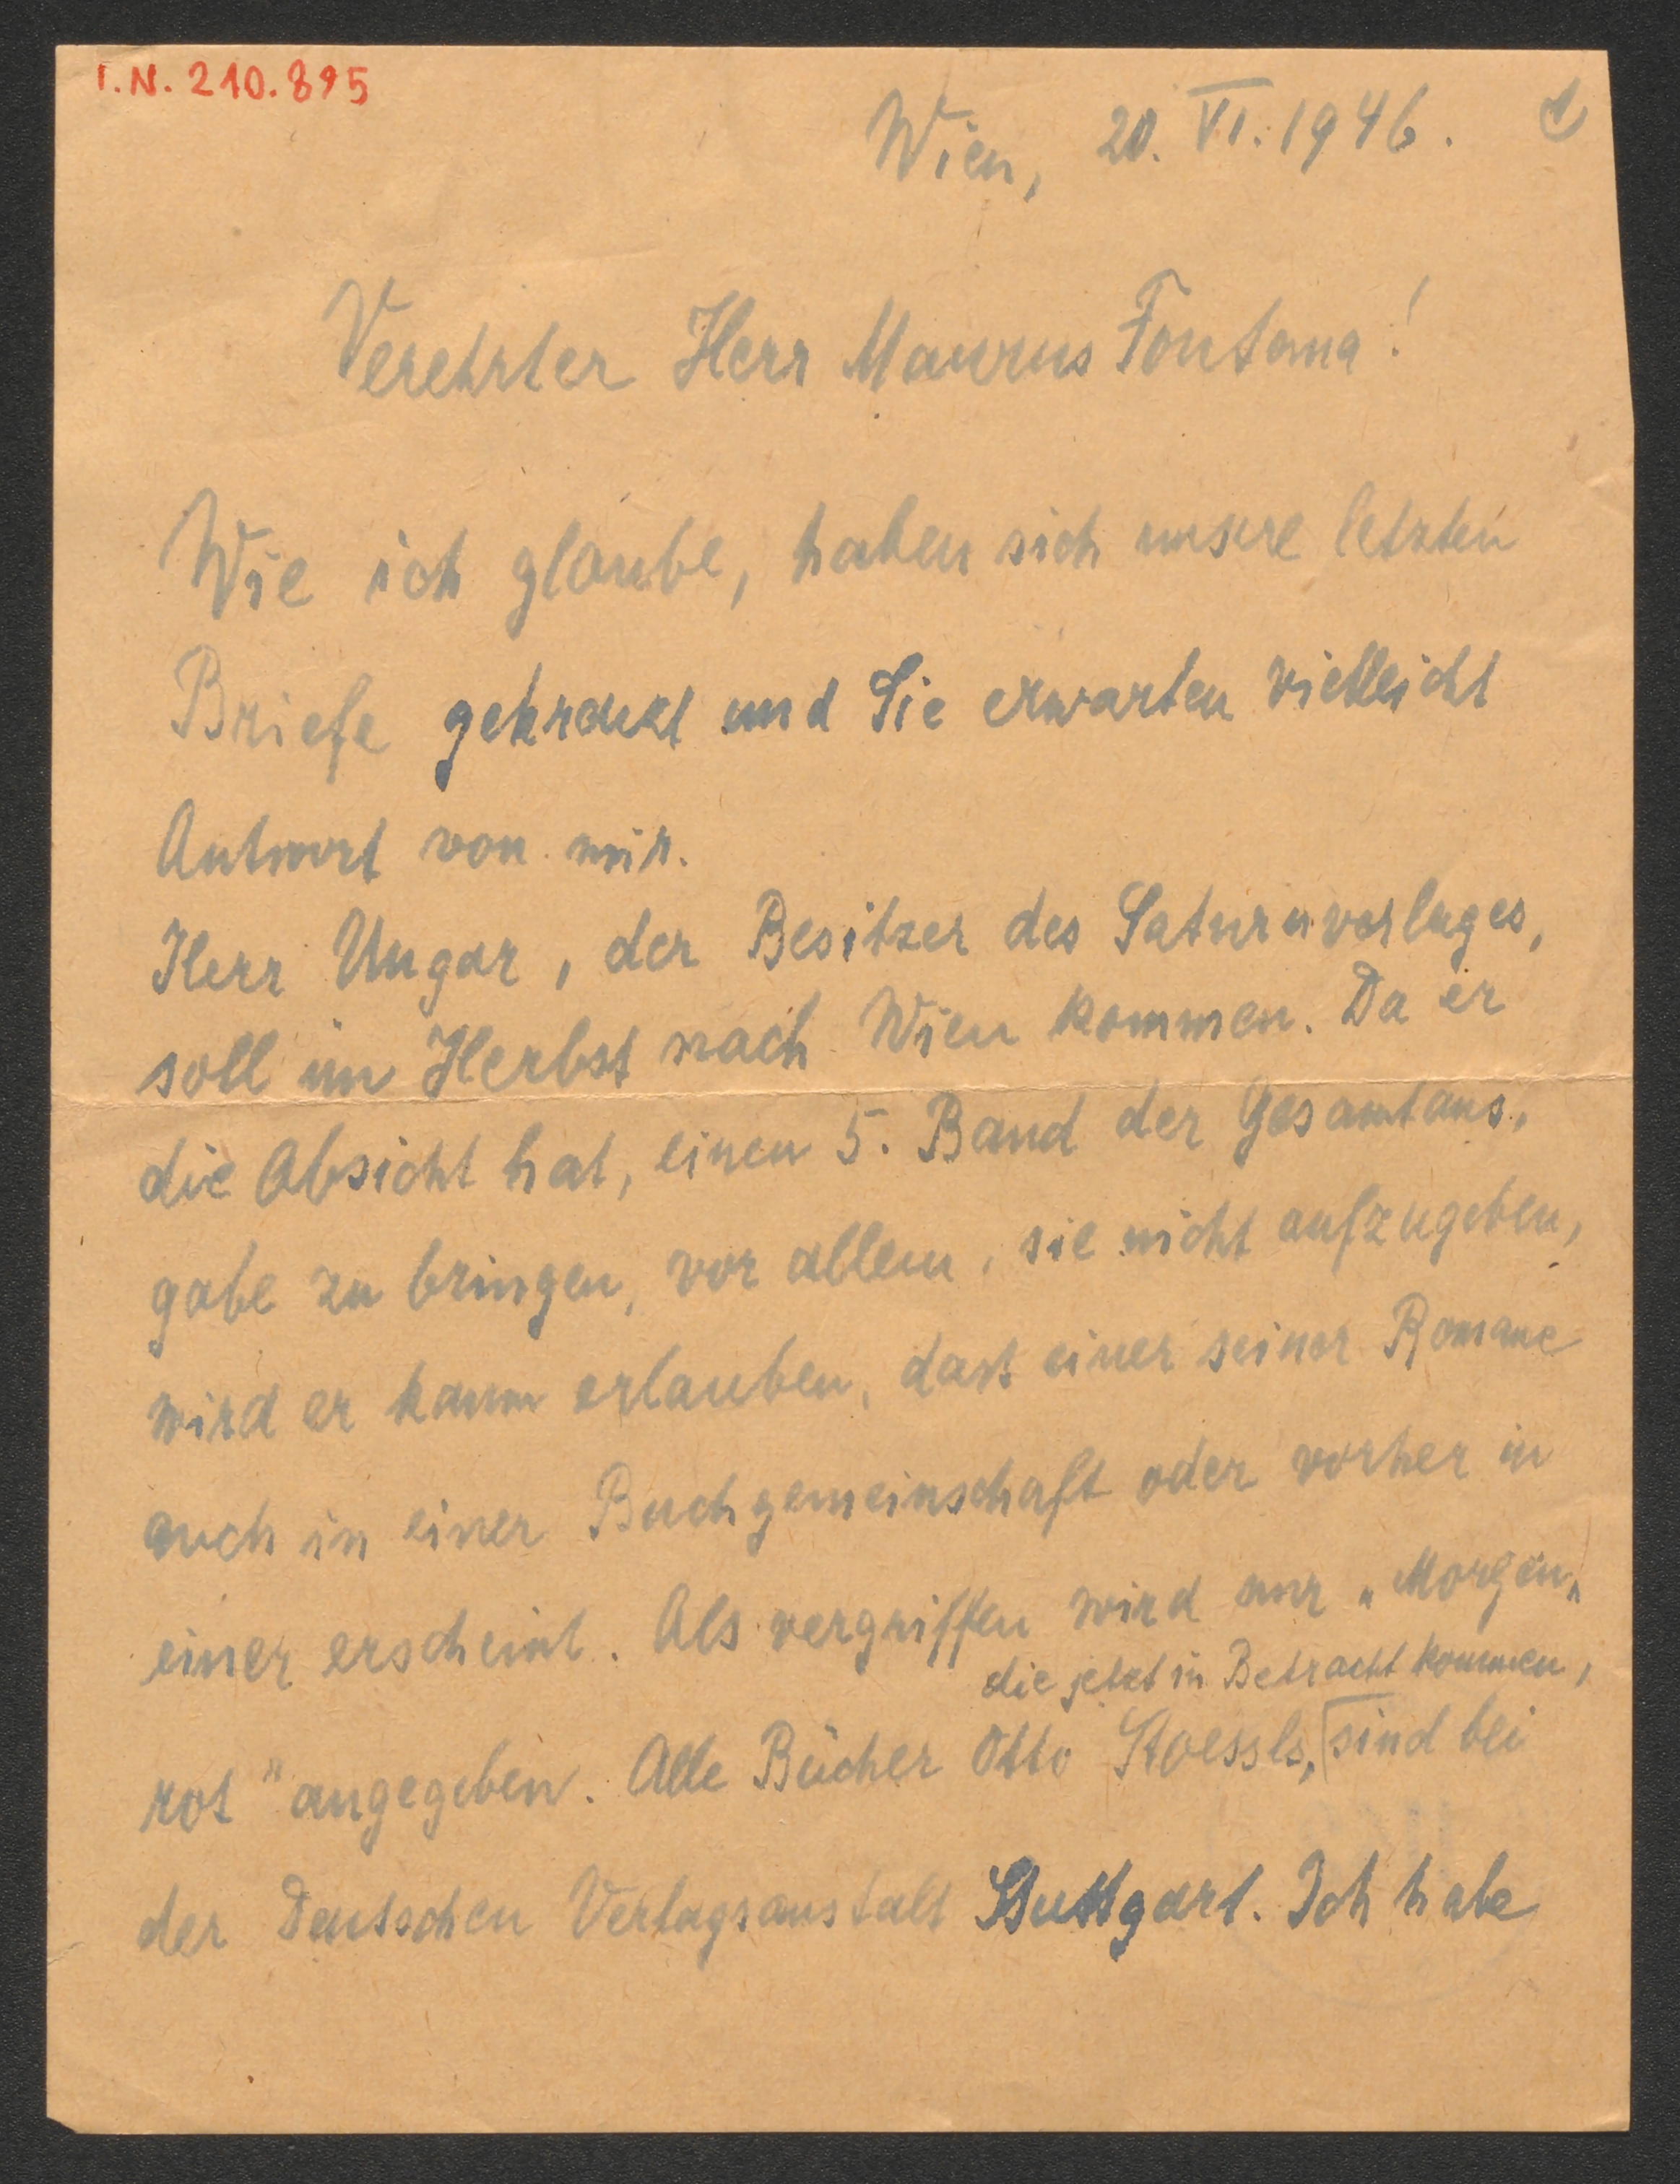 I.N. 210.895
Wien, 20. VI. 1946.
Verehrter Herr Maurus Fontana!
Wie ich glaube, haben sich unsere letzten
Briefe gekreuzt und Sie erwarten vielleicht
Antwort von mir.
Herr Ungar, der Besitzer des Saturnverlages,
soll im Herbst nach Wien kommen. Da er
die Absicht hat, einen 5. Band der Gesamtaus,
gabe zu bringen, vor allem, sie nicht aufzugeben,
wird er kaum erlauben, dass einer seiner Romane
auch in einer Buchgemeinschaft oder vorher in
einer erscheint. Als vergriffen wird nur „Morgen„
die jetzt in Betracht kommen,
rot" angegeben. Alle Bücher Otto Stoessls, sind bei
der Deutschen Verlagsanstalt Stuttgart. Ich habe